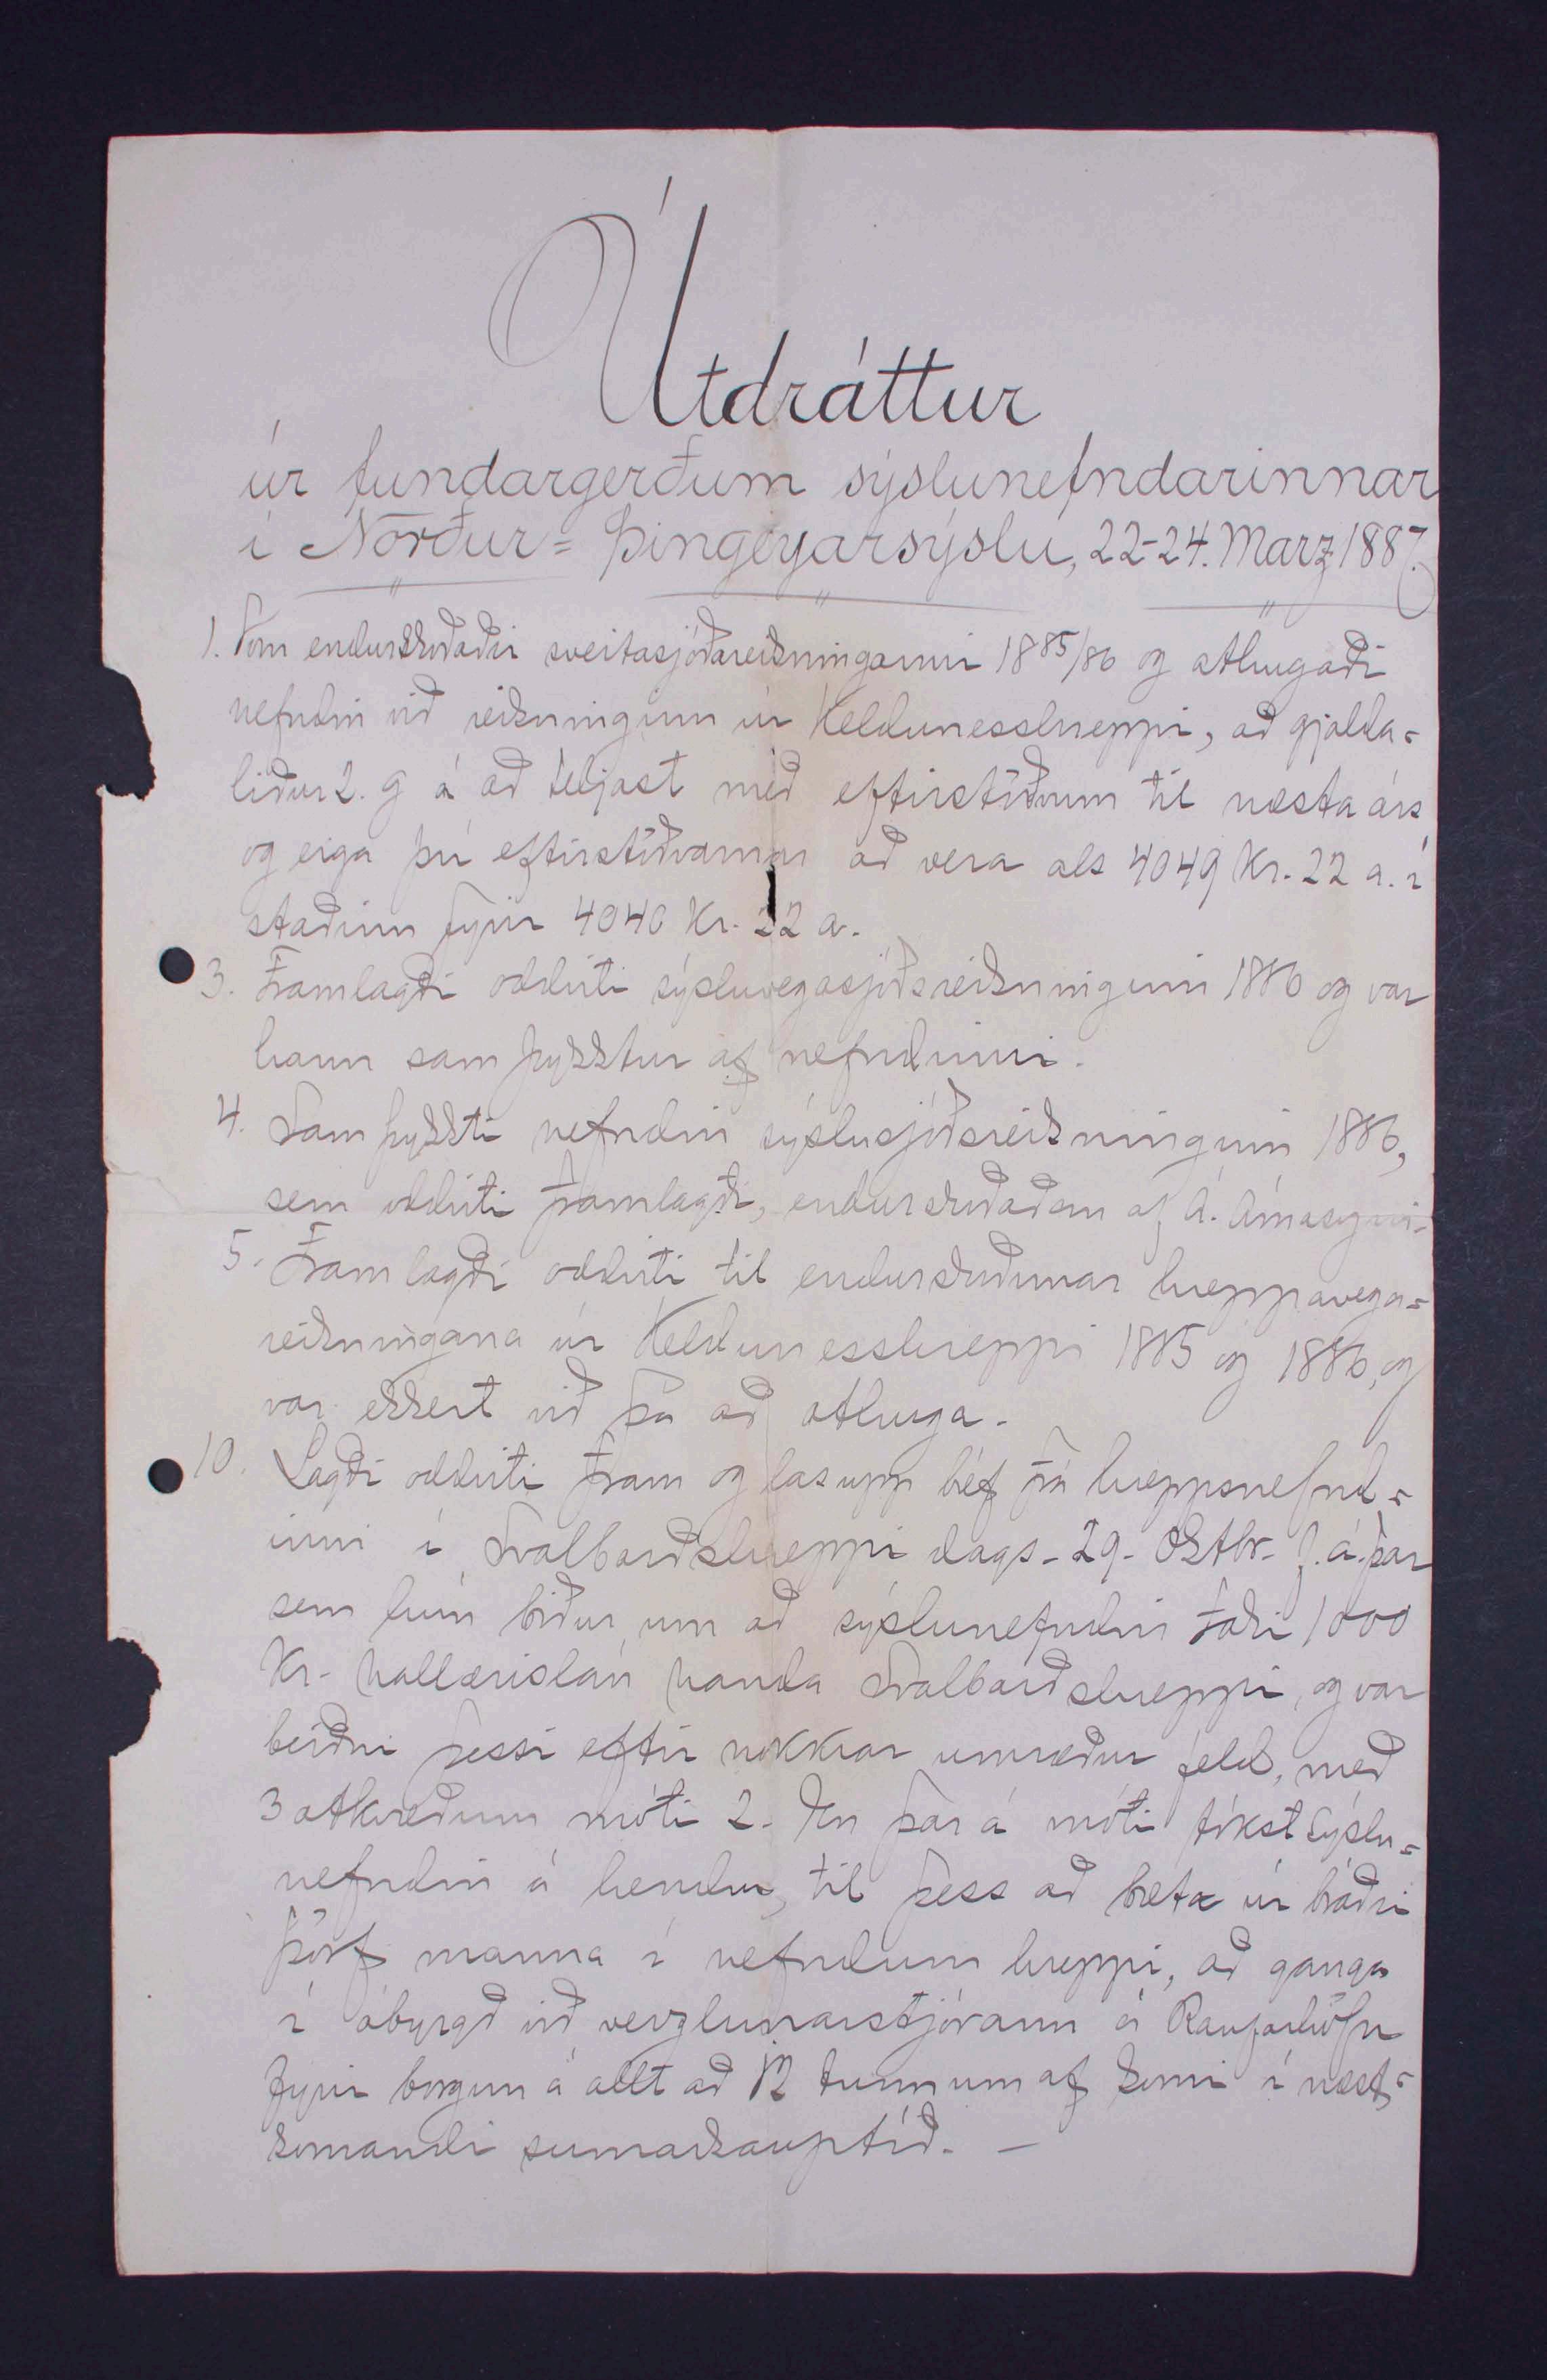 Útdráttur
úr fundargerðum sýslunefndarinnar
í Norður= Þingeyarsýslu, 22-24. Marz 1887.
1. Vom endurskoðaðir sveitasjóðareikningarnir 1885/86 og athugaði
nefndin við reikninginn úr Keldunesshreppi, að gjalda-
liður 2. g á að teljast með eptirstöðvum til næsta árs
og eiga því eptirstöðvarnar að vera als 4049 Kr. 22 a. í
staðinn fyrir 4040 Kr. 22 a.
3. Framlagði oddviti sýsluvegasjóðsreikninginn 1886 og var
hann samþykktur af nefndinni.
4. Samþykkti nefndin sýslusjóðsreikninginn 1886,
sem oddviti framlagði, endurskoðaðan af Á. Árnasyni.
5. Framlagði oddviti til endurskoðunar hreppavega-
reikningana úr Keldunesshreppi 1885 og 1886, og
var ekkert við þá að athuga.
10. Lagði oddviti fram og las upp bréf frá hreppsnefnd-
inni í Svalbarðshreppi dags. 29. Oktbr. f. á. þar
sem hún biður um að sýslunefndin tæki 1000
Kr. hallærislán handa Svalbarðshreppi, og var
beiðni þessi eftir nokkrar umræður feld, með
3 atkvæðum móti 2. En þar á móti tókst sýslu-
nefndin á hendur, til þess að bæta úr bráðri
þörf manna í nefndum hreppi, að ganga
í ábyrgð við verzlunarstjórann á Raufarhöfn
fyrir borgun á allt að 12 tunnum af korni í næst-
komandi sumarkauptíð. —